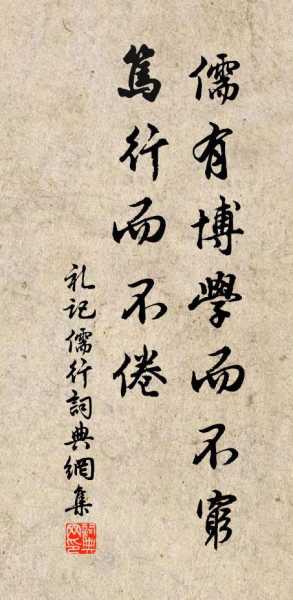 儒有博學而不窮
篤行而不倦
礼记儒行詞典網集